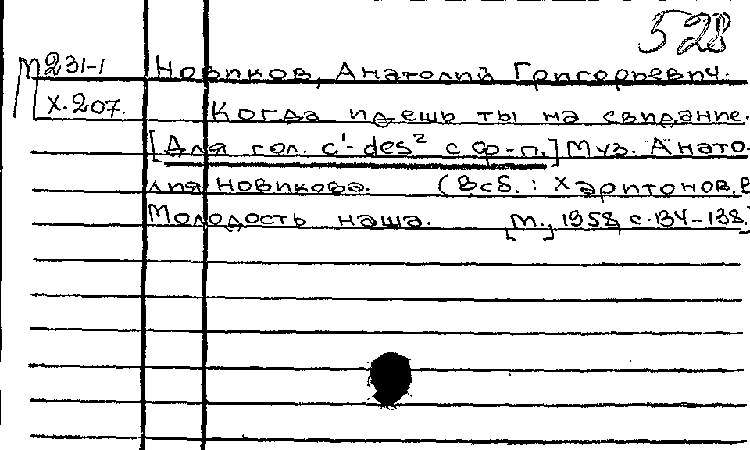 528
М231-1 Новиков, Анатолий Григорьевич.
X.207. Когда идешь ты на свидание.
[Для гол. c¹-des² с ф-п.] Муз. Анато-
лия Новикова. (В сб.: Харитонов, В
Молодость наша. [М.], 1958, с.134-138)